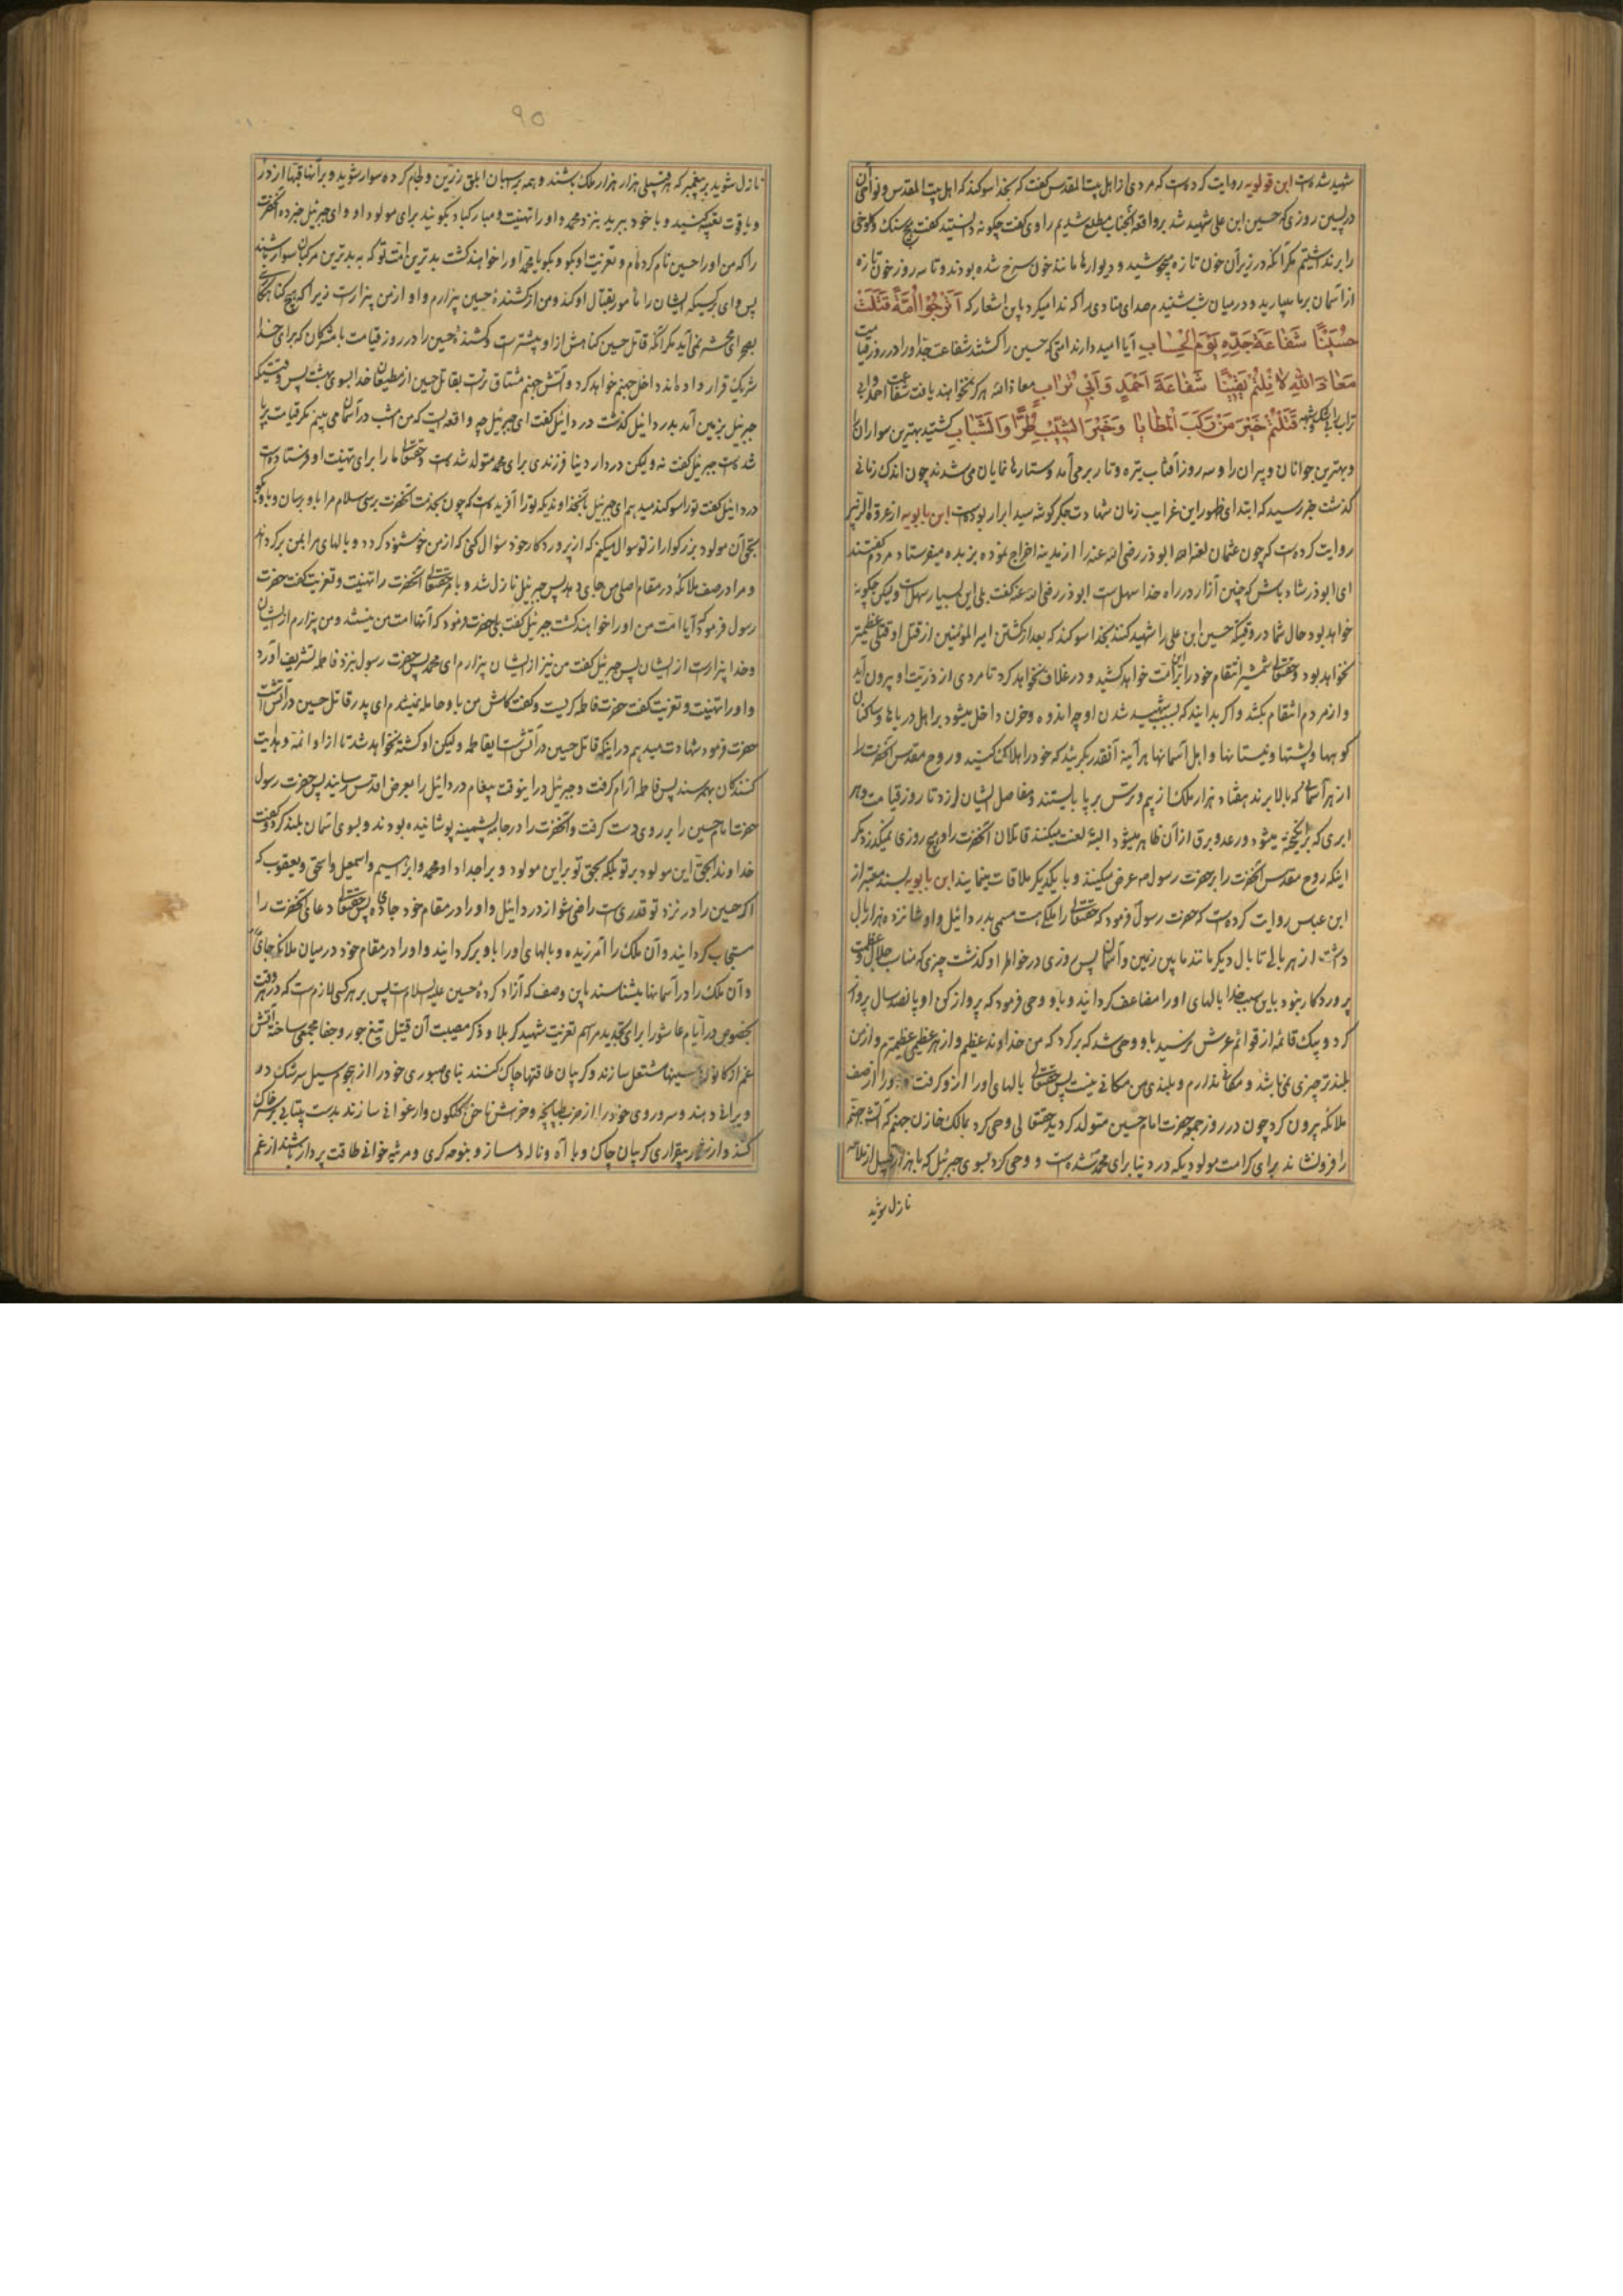 شهید شده است ابن قولویه روایت کرده است که مردی از اهل بیت المقدس گفت که بخدا سوکند که اهل بیت المقدس و نواحی آن
در پسین روزی که حسین ابن علی شهید شد بر واقعه آنجناب مطلع شدیم راوی گفت چگونه دانستید گفت هیچ سنک و کلوخی
را برنداشتیم مگر آنکه در زیر آن خون تازه میجوشید و دیوارها مانند خون سرخ شده بودند و تا سه روز خون تازه
از آسمان بر ما میبارید و در میان شب شنیدم صدای منادی را که ندا میکرد باین اشعار که أترجوا أمة قتلت
حسینا شفاعة جده یوم الحساب آیا امید دارند امتی که حسین را کشتند شفاعت جد او را در روز قیامت
معاذ الله لا نلتم یقینا شفاعة أحمد وأبی تراب معاذ الله هرگز نخواهند یافت شفاعت احمد و ابی
تراب را بیشک و شبهه قتلتم خیر من رکب المطایا وخیر الشیب طرا والشباب کشتید بهترین سواران را
و بهترین جوانان و پیران را و سه روز آفتاب تیره و تار برمی آمد و ستارها نمایان می شدند چون اندک زمانی
گذشت خبر رسید که ابتدای ظهور این غرایب زمان شهادت جگر گوشه سید ابرار بوده است ابن بابویه از عروة الزبیر
روایت کرده است که چون عثمان لعنه الله ابوذر رضی الله عنه را از مدینه اخراج نموده بربذه میفرستاد مردم گفتند
ای ابوذر شاد باش که چنین آزار در راه خدا سهل است ابوذر رضی الله عنه گفت بلی این بسیار سهل است ولیکن چگونه
خواهد بود حال شما در وقتیکه حسین ابن علی را شهید کنند بخدا سوکند که بعد از کشتن امیر المؤمنین از قتل او قتلی عظیمتر
نخواهد بود و حقتعالی شمشیر انتقام خود را بر این امت خواهد کشید و در غلاف نخواهد کرد تا مردی از ذریت او بیرون آید
و از مردم انتقام بکشد و اگر بدانید که بسبب شهید شدن او چه اندوه و حزن داخل میشود بر اهل دریاها و ساکنان
کوهها و پشتها و نیستانها و اهل آسمانها هر آینه آنقدر بگریید که خود را هلاک کنید و روح مقدس آنحضرت را
از هر آسمانی که بالا برند هفتاد هزار ملک از بیم و ترس بر پا بایستند و مفاصل ایشان لرزد تا روز قیامت و هر
ابری که برانگیخته میشود و رعد و برق از آن ظاهر میشود البته لعنت میکنند قاتلان آنحضرت را و هیچ روزی نمیگذرد مگر
اینکه روح مقدس آنحضرت را بر حضرت رسول م عرض میکنند و با یکدیگر ملاقات مینمایند ابن بابویه بسند معتبر از
ابن عباس روایت کرده است که حضرت رسول فرمود که حقتعالی را ملکی هست مسمی بدردائیل و او شانزده هزار بال
داشت از هر بالی تا بال دیگر مانند مابین زمین و آسمان پس روزی در خواطر او گذشت چیزی که مناسب جلال و عظمت
پروردگار نبود باین سبب خدا بالهای او را مضاعف گردانید و باو وحی فرمود که پرواز کن او پانصد سال پرواز
کرد و بیک قائمه از قوائم عرش نرسید باو وحی شد که برگرد که من خداوند عظیم و از هر عظیمی عظیمترم و از من
بلندتر چیزی نمی باشد و مکانی ندارم و بلندی من مکانی نیست پس حقتعالی بالهای او را ازو گرفت و او را از صف
ملائکه بیرون کرد چون در روز جمعه حضرت امام حسین متولد گردید حقتعالی وحی کرد بمالک خازن جهنم که آتش جهنم
را فرو نشاند برای کرامت مولودیکه در دنیا برای محمد م شده است و وحی کرد بسوی جبرئیل که با هزار قبیل از ملائکه
نازل شوید
۹۵
نازل شوید بر پیغمبر که هر قبیلی هزار هزار ملک باشند و همه بر اسبان ابلق زرین و لجام کرده سوار شوید و بر آنها قبها از در
و یاقوت تعبیه کشید و با خود ببرید بنزد محمد و او را تهنیت و مبارکباد بگوئید برای مولود او و ای جبرئیل خبر ده آنحضرت
را که من او را حسین نام کرده ام و تعزیت او بگو و بگو یا محمد او را خواهند کشت بدترین امت تو که بر بدترین مرکبان سوار باشند
پس وای بر کسیکه ایشان را مامور بقتال او کند و من از کشندهٔ حسین بیزارم و او از من بیزار است زیرا که هیچ گناهکاری
بصحرای محشر نمی آید مگر آنکه قاتل حسین گناهش از او بیشتر است و کشندهٔ حسین را در روز قیامت با مشرکان که برای خدا
شریک قرار داده اند داخل جهنم خواهد کرد و آتش جهنم مشتاق تر است بقاتل حسین از مطیعان خدا بسوی بهشت پس وقتیکه
جبرئیل بزمین آمد بدردائیل گذشت دردائیل گفت ای جبرئیل چه واقعه ایست که من امشب در آسمان می بینم مگر قیامت برپا
شده است جبرئیل گفت نه ولیکن در دار دنیا فرزندی برای محمد متولد شده است و حقتعالی ما را برای تهنیت او فرستاده است
دردائیل گفت تو را سوکند میدهم ای جبرئیل بآنخداوندیکه تو را آفریده است که چون بخدمت آنحضرت برسی سلام مرا باو برسان و باو بگو
بحق آن مولود بزرگوار از تو سوال میکنم که از پروردگار خود سؤال کنی که از من خوشنود گردد و بالهای مرا بمن برگرداند
و مرا در صف ملائکه در مقام اصلی من جای دهد پس جبرئیل نازل شد و بامر حقتعالی آنحضرت را تهنیت و تعزیت گفت حضرت
رسول فرمود که آیا امت من او را خواهند کشت جبرئیل گفت بلی حضرت فرمود که آنها امت من نیستند و من بیزارم از ایشان
و خدا بیزار است از ایشان پس جبرئیل گفت من نیز از ایشان بیزارم ای محمد پس حضرت رسول بنزد فاطمه تشریف آورد
و او را تهنیت و تعزیت گفت حضرت فاطمه گریست و گفت کاش من باو حامله نمیشدم ای پدر قاتل حسین در آتش است
حضرت فرمود شهادت میدهم در اینکه قاتل حسین در آتش است ایفاطمه ولیکن او کشته نخواهد شد تا از او ائمه و هدایت
کنندگان بهم رسند پس فاطمه آرام گرفت و جبرئیل در اینوقت پیغام دردائیل را بعرض اقدس رسانید پس حضرت رسول
حضرت امام حسین را بر روی دست گرفت و آنحضرت را در جامه پشمینه پوشانیده بودند و بسوی آسمان بلند کرد و گفت
خداوندا بحق این مولود بر تو بلکه بحق تو بر این مولود و بر اجداد او محمد و ابراهیم و اسمعیل و اسحق و یعقوب که
اگر حسین را در نزد تو قدری است راضی شو از دردائیل و او را در مقام خود جا ده پس حقتعالی دعای آنحضرت را
مستجاب گردانید و آن ملک را آمرزیده و بالهای او را باو برگردانید و او را در مقام خود در میان ملائکه جای داد
و آن ملک را در آسمانها میشناسند باین وصف که آزاد کردهٔ حسین علیه السلام است پس بر هر کسی لازم است که در هر وقت
بخصوص در ایام عاشورا برای تجدید مراسم تعزیت شهید کربلا و ذکر مصیبت آن قتیل تیغ جور و جفا مجمعی ساخته آتش
غم از کانون سینها مشتعل سازند و گریبان طاقتها چاک کنند بنای صبوری خود را از هجوم سیل سرشک در
ویرانی دهند و سر و روی خود را از ضرب طپانچه و خراش ناخن گلگون و ارغوانی سازند بدست بیتابی بر سر خاک
کنند و از بیقراری گریبان چاک و با آه و ناله دمساز و بنوحه گری و مرثیه خوانی طاقت پرداز باشند از غم